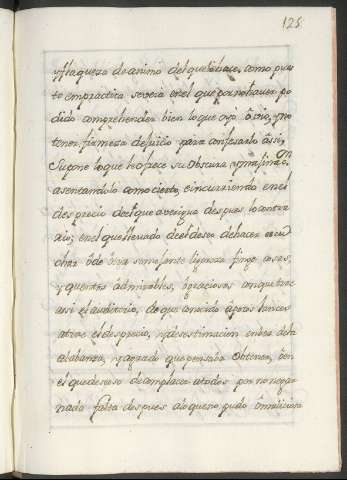 125
y flaqueza de animo del que la hace, como pues
to en practica se vera en el que por no haver po
dido comprehender bien lo que oyò, ò vio, y no
tener firmeza de juicio para confesarlo assi,
Supone lo que le ofrece su obscura ymaginac.on
asentandolo como cierto, è incurriendo en el
desprecio del que averigua despues lo contra
rio; en el que llevado del deseo de hacer escu
char ò de semejante ligereza finge cosas,
y quentos admirables, ò graciosos con que trae
asi el auditorio, de que conocido à pocos lances
atrae el desprecio, y desestimacion en vez de la
alabanza, y agrado que pensaba obtener, ò en
el que deseoso de complacer a todos por no negar
nada falta despues à lo que no pudo ò maliciosa